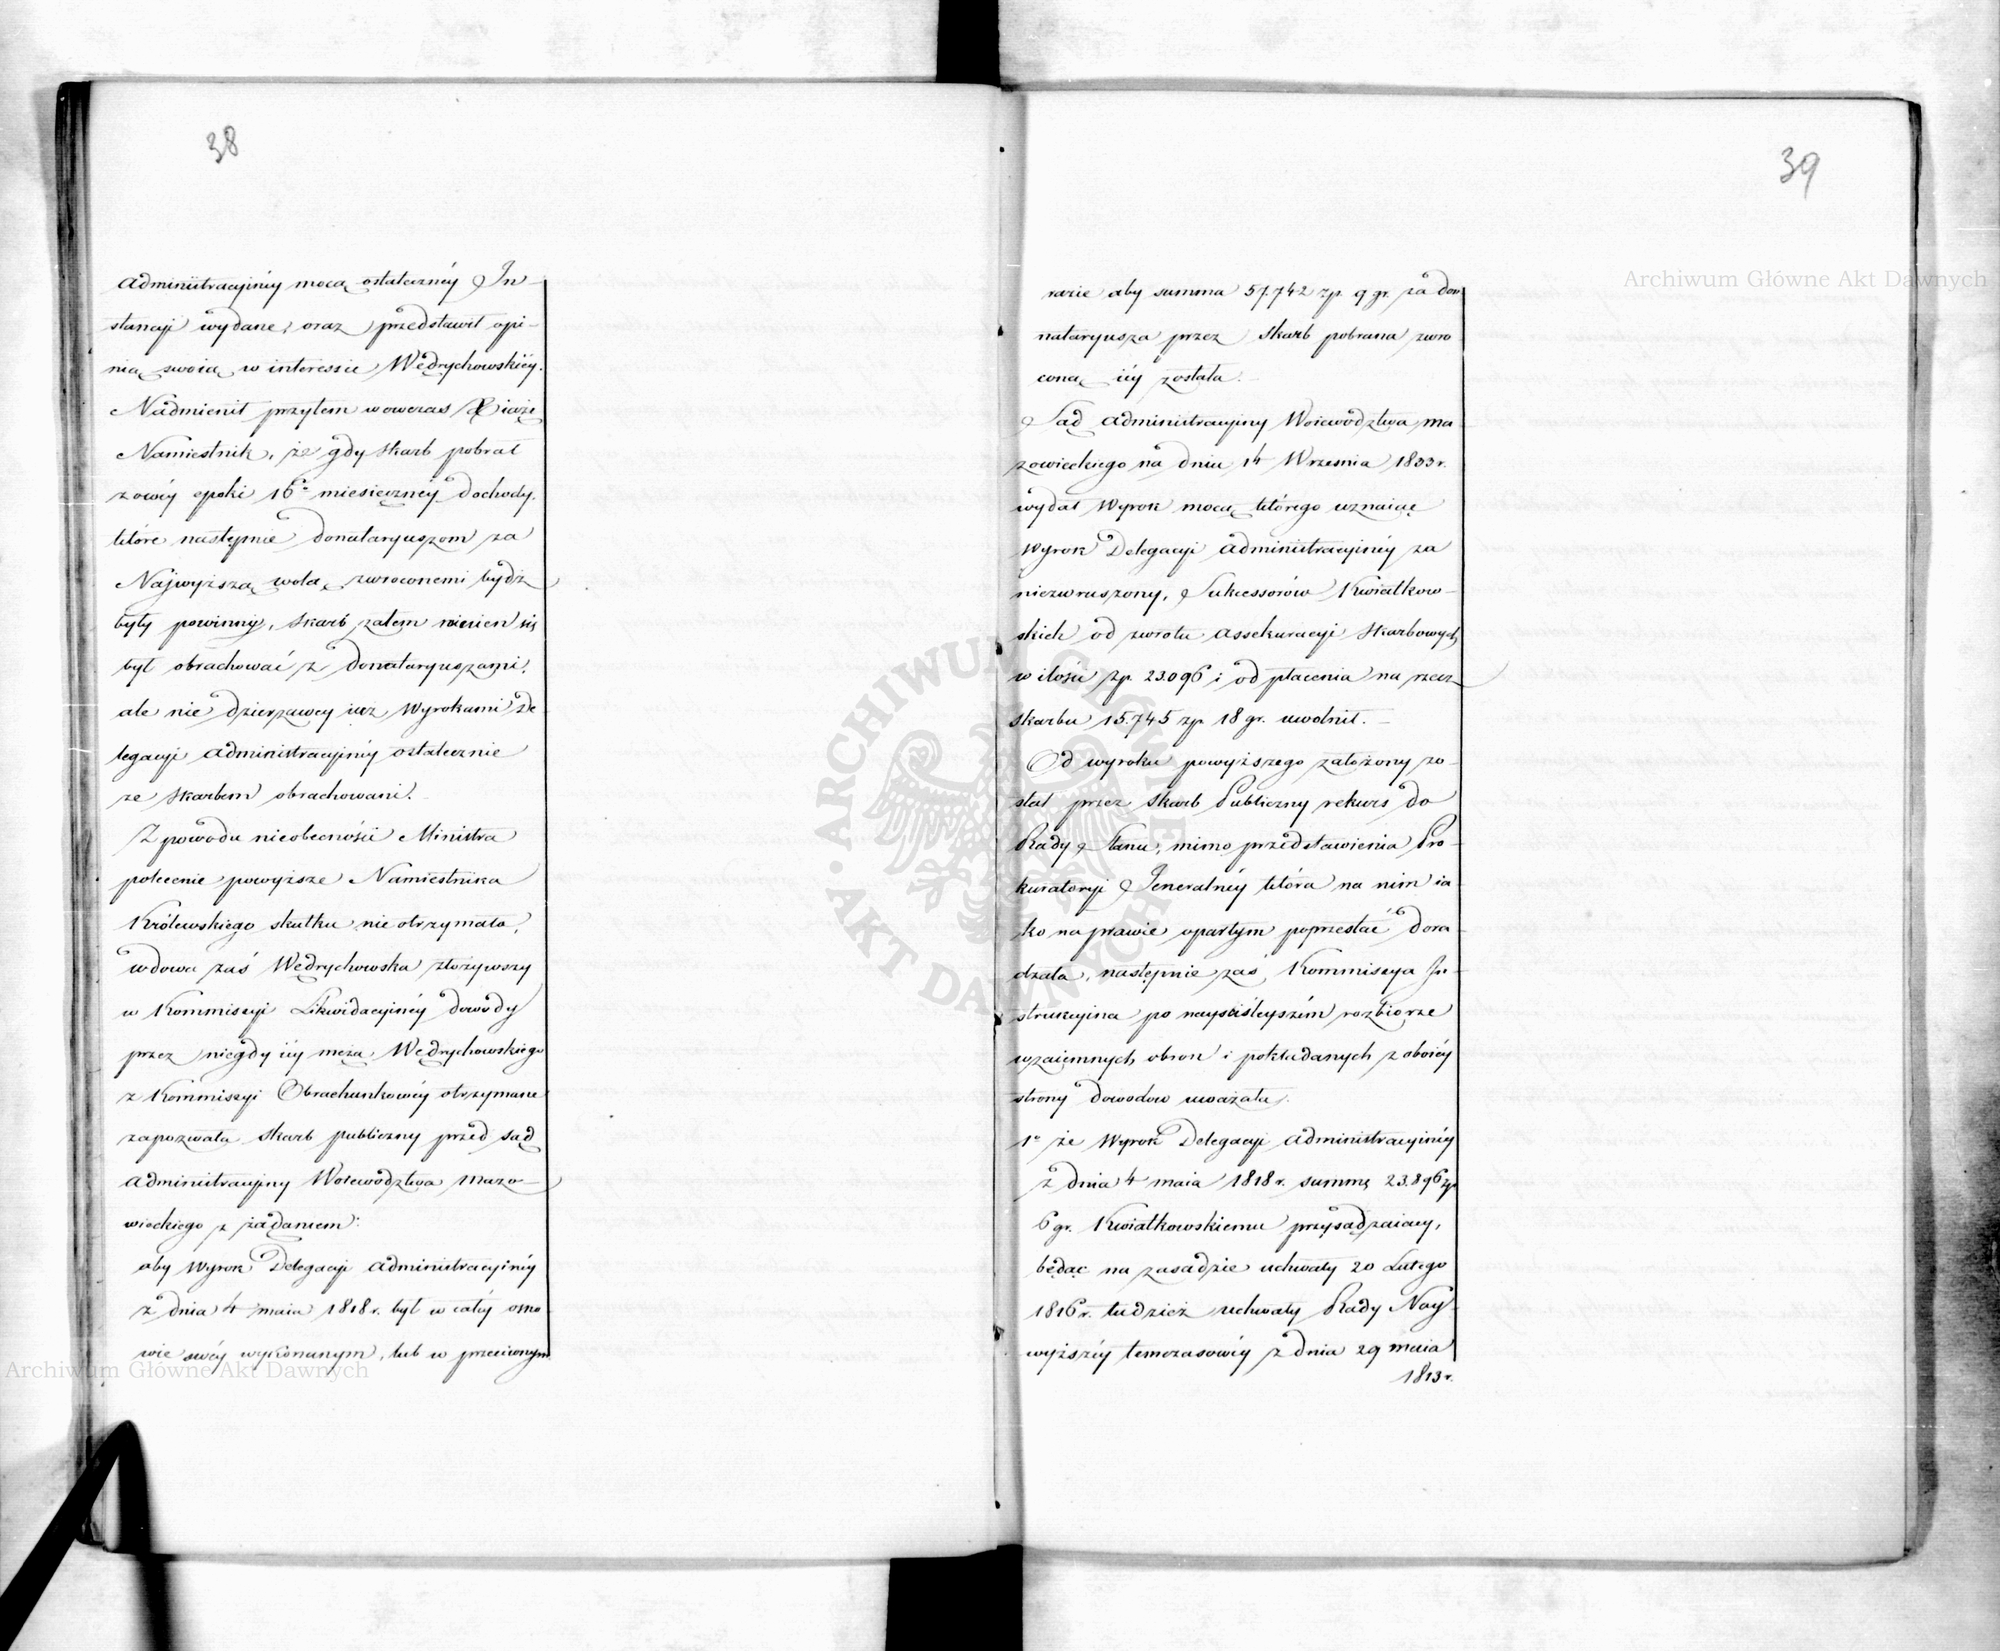 38
administracyiney mocą ostateczney In-
stancyi wydane, oraz przedstawił opi-
nią swoią w interessie Wędrychowskiey.
Nadmienił przytem wowczas Xiąże
Namiestnik, że gdy skarb pobrał
z owéy epoki 16to miesięczney dochody,
które następnie donataryuszom za
Najwyższą wolą zwroconemi bydź
były powinny, skarb zatem winien się
był obrachować z donataryuszami,
ale nie dzierzawcy iuż Wyrokami De
legacyi administracyiney ostatecznie
ze skarbem obrachowani.
Z powodu nieobecności Ministra
polecenie powyższe Namiestnika
Królewskiego skutku nie otrzymało,
wdowa zaś Wędrychowska złożywszy
w Kommissyi Likwidacyiney dowody
przez niegdy iéy męża Wędrychowskiego
z Kommissyi Obrachunkowéy otrzymane
zapozwała skarb publiczny przed sąd
administracyiny Woiewództwa Mazo-
wieckiego z żądaniem:
aby Wyrok Delegacyi administracyinéy
z dnia 4 maia 1818 r. był w całéy osno
wie swéy wykonanym, lub w przeciwnym
39
razie aby summa 57.742 zp. 9 gr. za do
nataryusza przez skarb pobrana zwro
coną iéy została.
Sąd administracyiny Woiewództwa Ma
zowieckiego na dniu 14 Września 1833 r.
wydał Wyrok mocą którego uznaiąc
Wyrok Delegacyi administracyinéy za
niezwruszony, Sukcessorów Kwiatkow-
skich od zwrotu assekuracyi skarbowych
w ilości zp. 23.096 i od płacenia na rzecz
skarbu 15.745 zp. 18 gr. uwolnił.
Od wyroku powyższego założony zo-
stał przez Skarb Publiczny rekurs do
Rady Stanu, mimo przedstawienia Pro-
kuratoryi Jeneralnéy która na nim ia-
ko na prawie opartym poprzestać dora
dzała, następnie zaś Kommissya In-
strukcyina po nayściśleyszém rozbiorze
wzaiemnych obron i pokładanych z oboiéy
strony dowodow uważała.
1o że Wyrok Delegacyi administracyinéy
z dnia 4 maia 1818 r. summę 23.896 zp
6 gr. Kwiatkowskiemu przysądzaiący,
będąc na zasadzie uchwały 20 Lutego
1816 r. tudzież uchwały Rady Nay-
wyższéy tymczasowéy z dnia 29 maia
1813 r.
Archiwum Główne Akt Dawnych
Archiwum Główne Akt Dawnych
ARCHIWUM GŁÓWNE AKT DAWNYCH